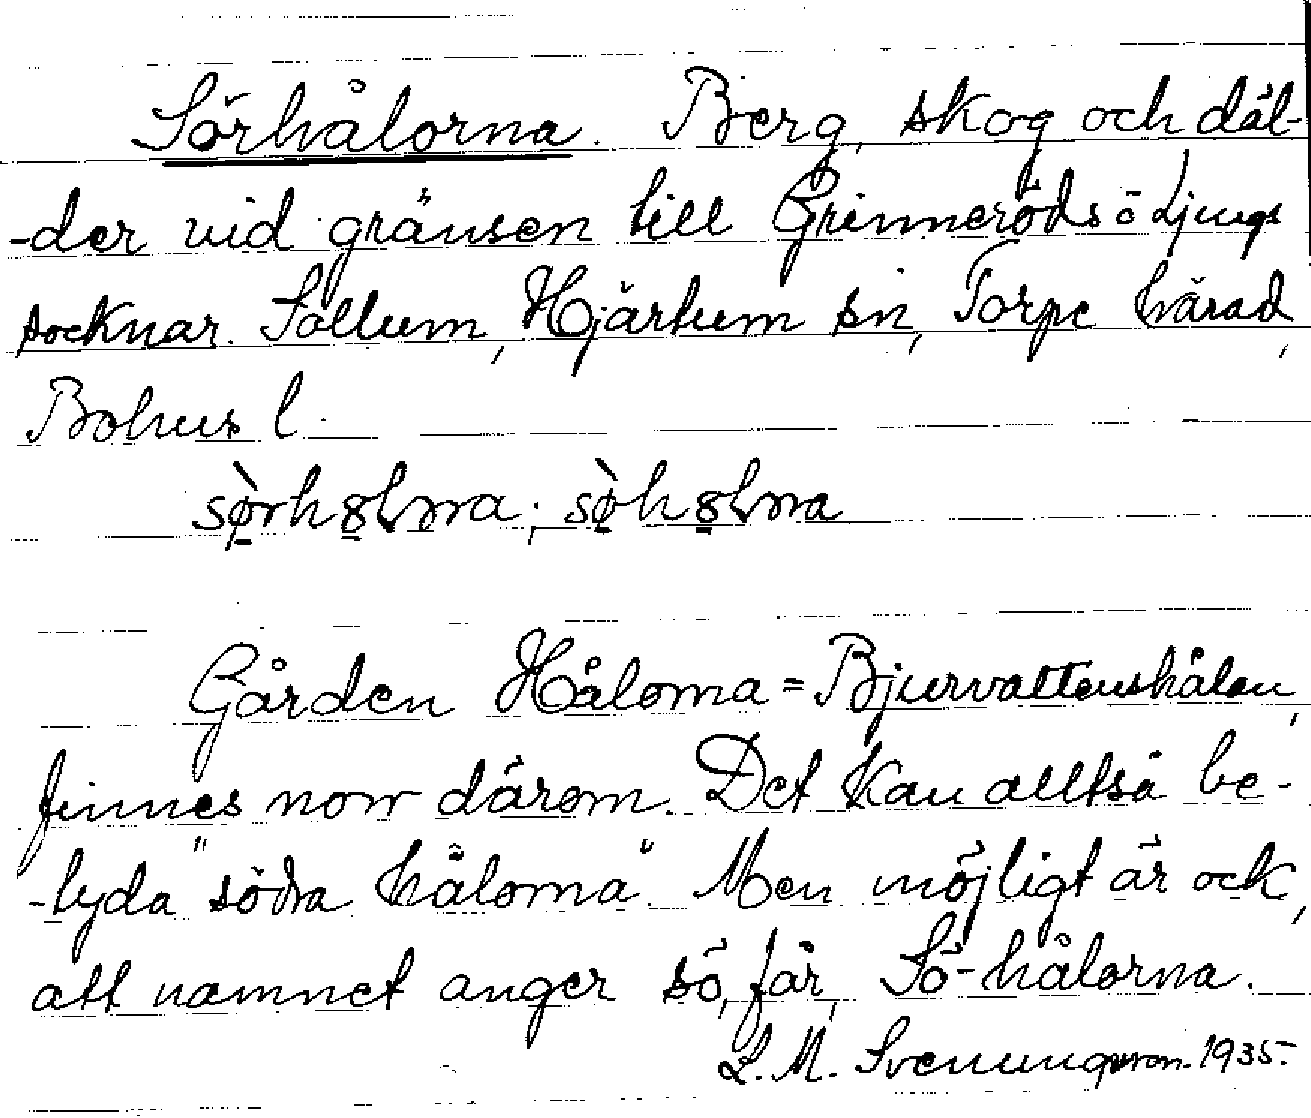 Sörhålorna. Berg, skog och däl-
-der vid gränsen till Grinneröds o Ljungs
socknar. Sollum, Hjärtum sn, Torpe härad,
Bohus l.
Gården Hålorna = Bjurvattenshålan,
finnes norr därom. Det kan alltså be-
-tyda "södra hålorna". Men möjligt är ock,
att namnet anger sö, får, Sö-hålorna.
L. M. Svenungsson. 1935.